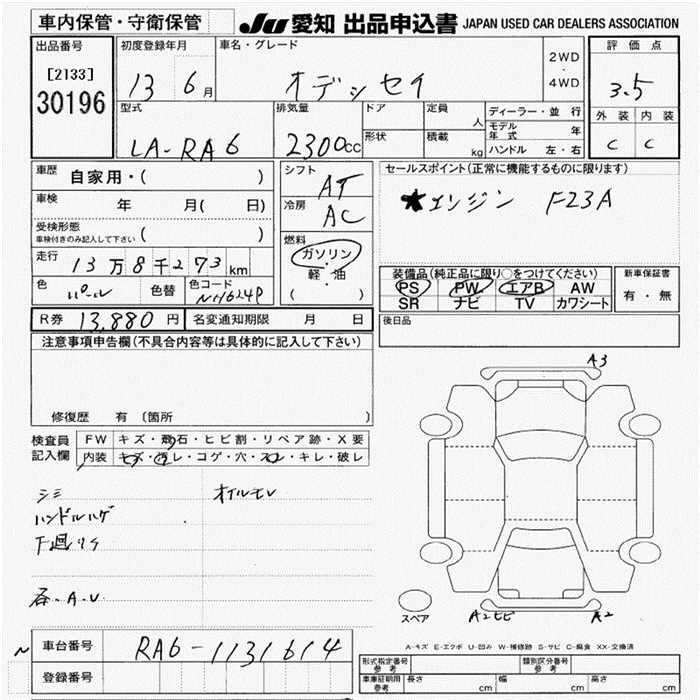 車内保管・守衛保管
JU 愛知 出品申込書 JAPAN USED CAR DEALERS ASSOCIATION
出品番号
[2133]
30196
初度登録年月
13 6月
車名・グレード
オデッセイ
2WD
・
4WD
評価点
3.5
外装 内装
C C
型式
LA-RA6
排気量
2300cc
ドア
形状
定員
人
積載
kg
ディーラー・並行
モデル年式 年
ハンドル 左・右
車歴
自家用・( )
車検
年 月( 日)
受検形態
車検付きのみ記入して下さい ( )
走行
13万8千273km
色
パール
色替
色コード
NH624P
シフト
AT
冷房
AC
燃料
ガソリン
・
軽・油
( )
セールスポイント(正常に機能するものに限ります)
★エンジン F23A
装備品(純正品に限り○をつけてください)
PS PW エアB AW
SR ナビ TV カワシート
新車保証書
有・無
R券 13,880円
名変通知期限 月 日
後日品
注意事項申告欄(不具合内容等は具体的に記入して下さい)
修復歴 有 〔箇所 〕
検査員
記入欄
FW キズ・飛石・ヒビ割・リペア跡・X要
内装 キズ・汚レ・コゲ・穴・スレ・キレ・破レ
シミ
オイルモレ
ハンドルハゲ
下廻リサ
A3
A2ヒビ
A2
スペア
A-キズ E-エクボ U-凹み W-補修跡 S-サビ C-腐食 XX-交換済
車台番号
RA6-1131614
登録番号
形式指定番号
参考
類別区分番号
参考
車庫証明用
参考
長さ cm
幅 cm
高さ cm